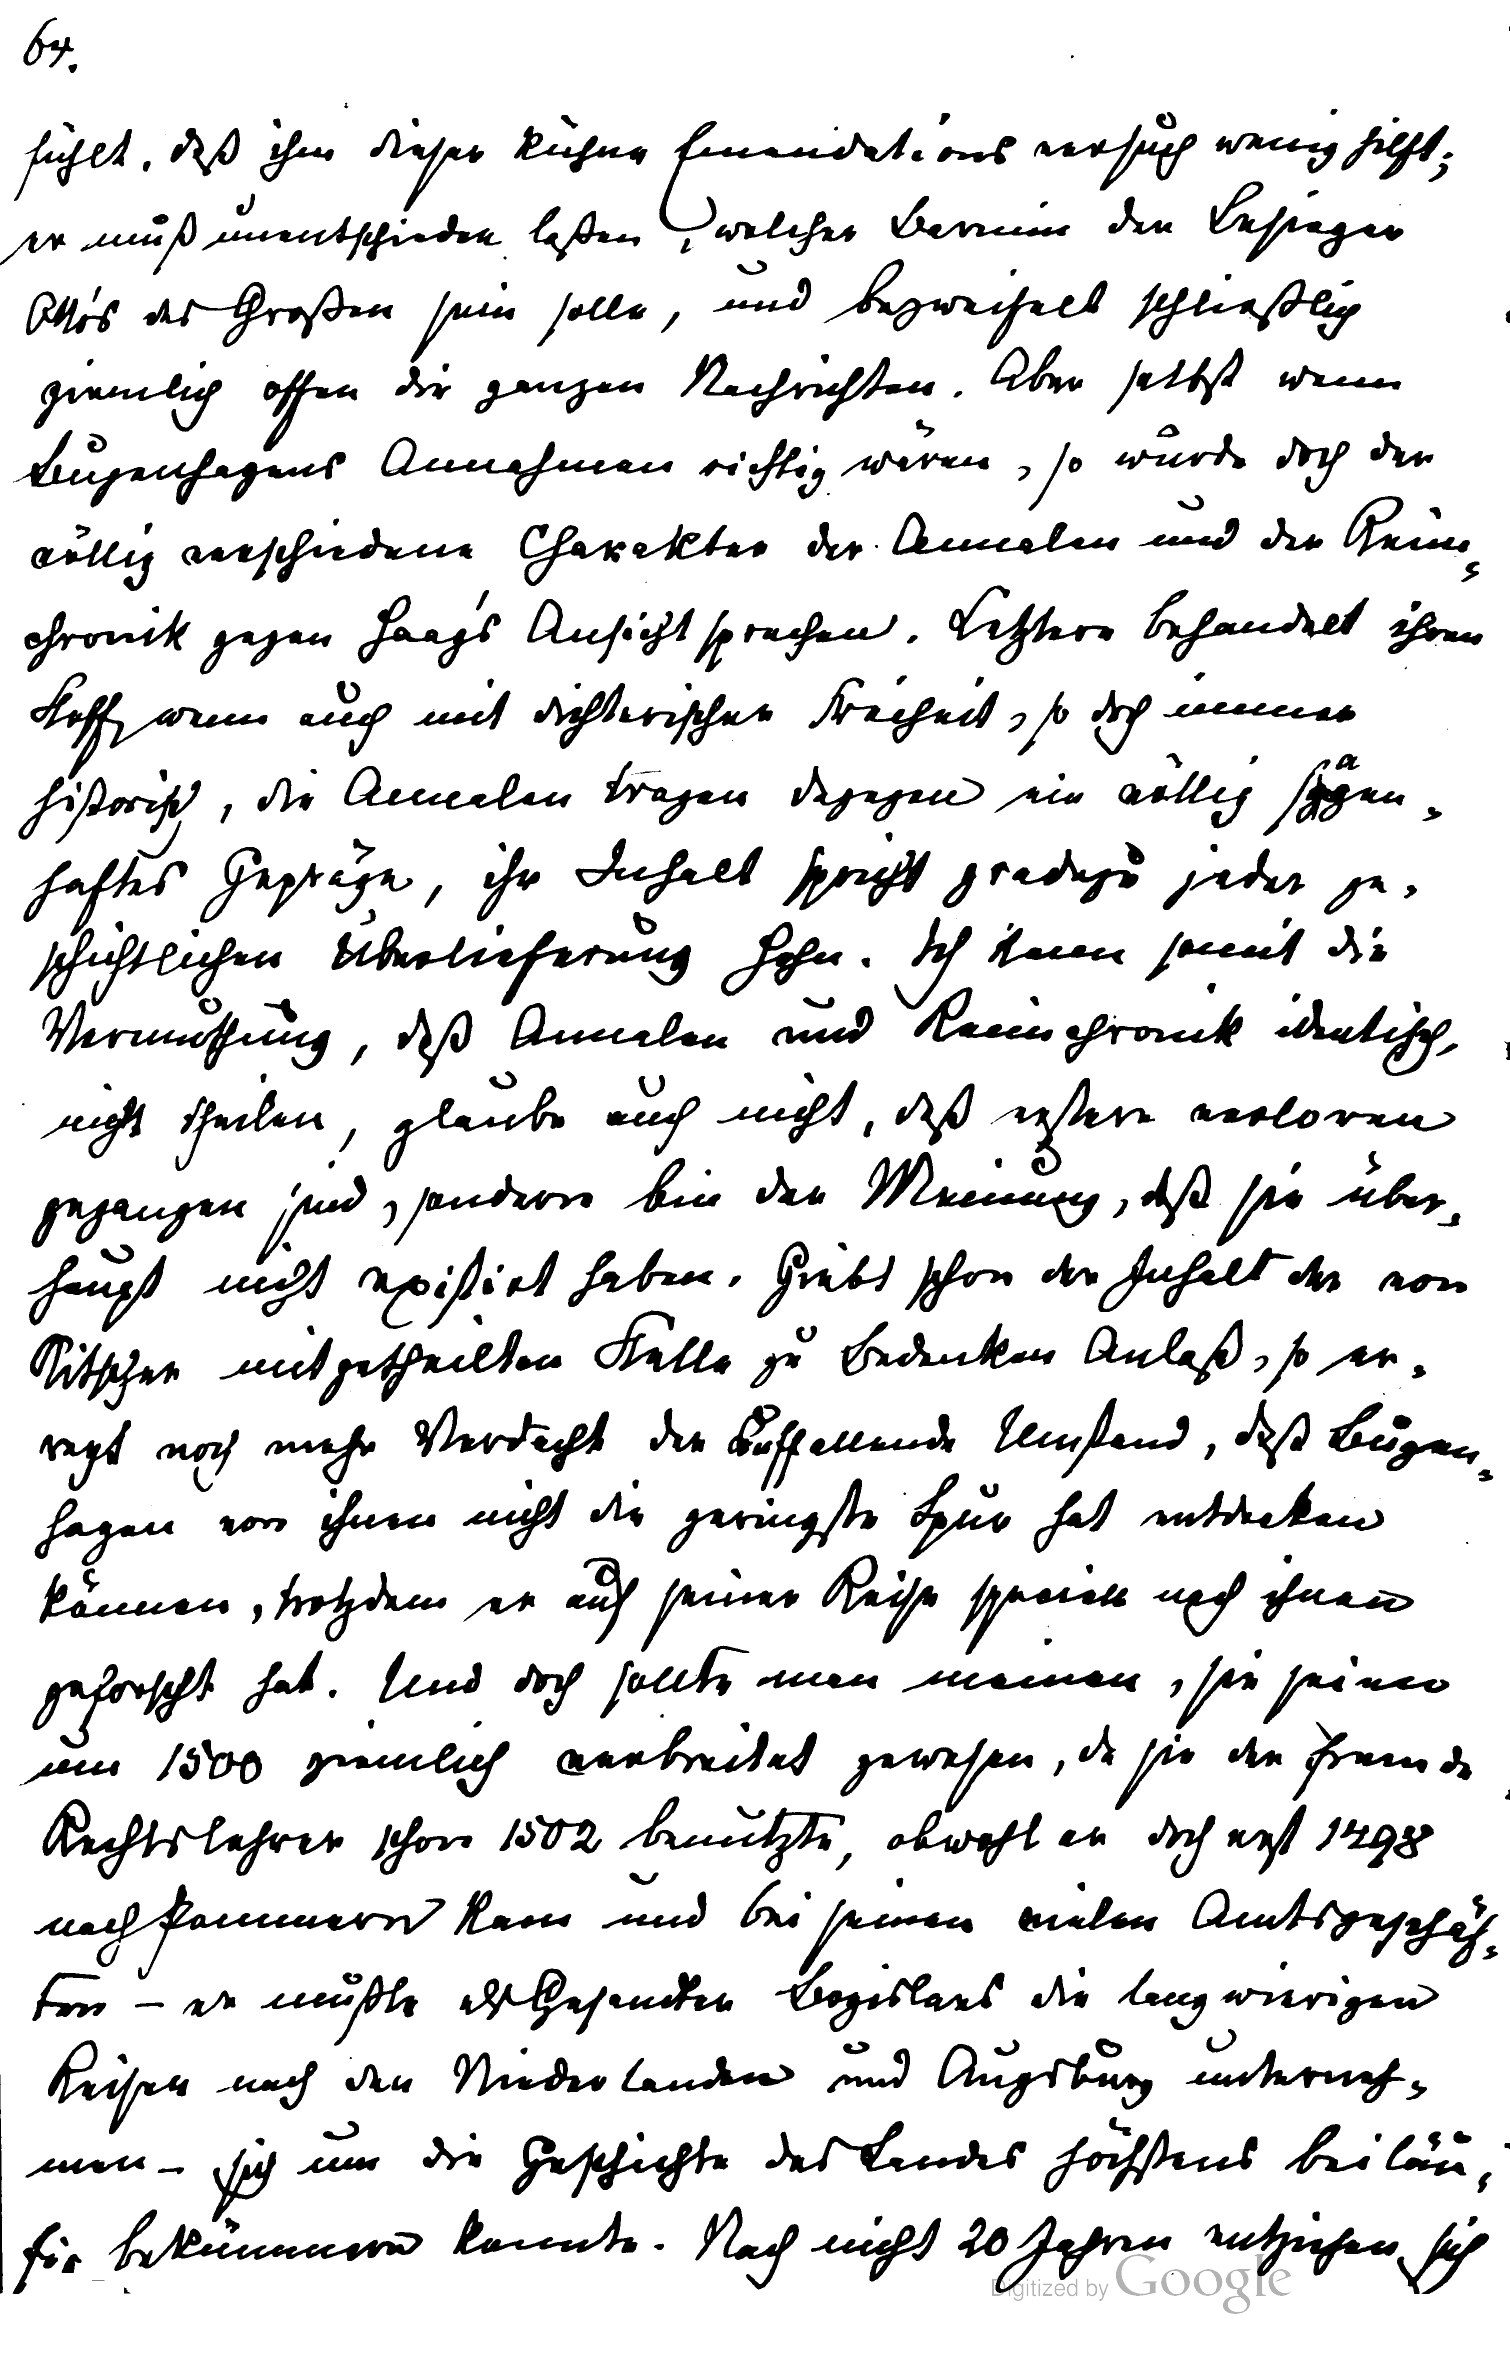 64.
fühlt, daß ihm dieser kühne Emendationsversuch wenig hilft;
er muß unentschieden laßen, welcher Barnim der Besieger
Otto's des Großen sein solle, und bezweifelt schließlich
ziemlich offen die ganzen Nachrichten. Aber selbst wenn
Bugenhagens Annahmen richtig wären, so würde doch der
völlig verschiedene Charakter der Annalen und der Reim-
chronik gegen Haag's Ansicht sprechen. Letztere behandelt ihren
Stoff, wenn auch mit dichterischer Freiheit, so doch immer
historisch, die Annalen tragen dagegen ein völlig sagen-
haftes Gepräge, ihr Inhalt spricht gradezu jeder ge-
schichtlichen Überlieferung Hohn. Ich kann somit die
Vermuthung, daß Annalen und Reimchronik identisch,
nicht theilen, glaube auch nicht, daß erstere verloren
gegangen sind, sondern bin der Meinung, daß sie über-
haupt nicht existirt haben. Giebt schon der Inhalt der von
Kitscher mitgetheilten Stelle zu Bedenken Anlaß, so er-
regt noch mehr Verdacht der auffallende Umstand, daß Bugen-
hagen von ihnen nicht die geringste Spur hat entdecken
können, trotzdem er auf seiner Reise speciell nach ihnen
geforscht hat. Und doch sollte man meinen, sie seien
um 1500 ziemlich verbreitet gewesen, da sie der fremde
Rechtslehrer schon 1502 benutzte, obwohl er doch erst 1498
nach Pommern kam und bei seinen vielen Amtsgeschäf-
ten – er mußte als Gesandter Bogislavs die langwierigen
Reisen nach den Niederlanden und Augsburg unterneh-
men – sich um die Geschichte des Landes höchstens beiläu-
fig bekümmern konnte. Nach nicht 20 Jahren entziehen sich
Digitized by Google